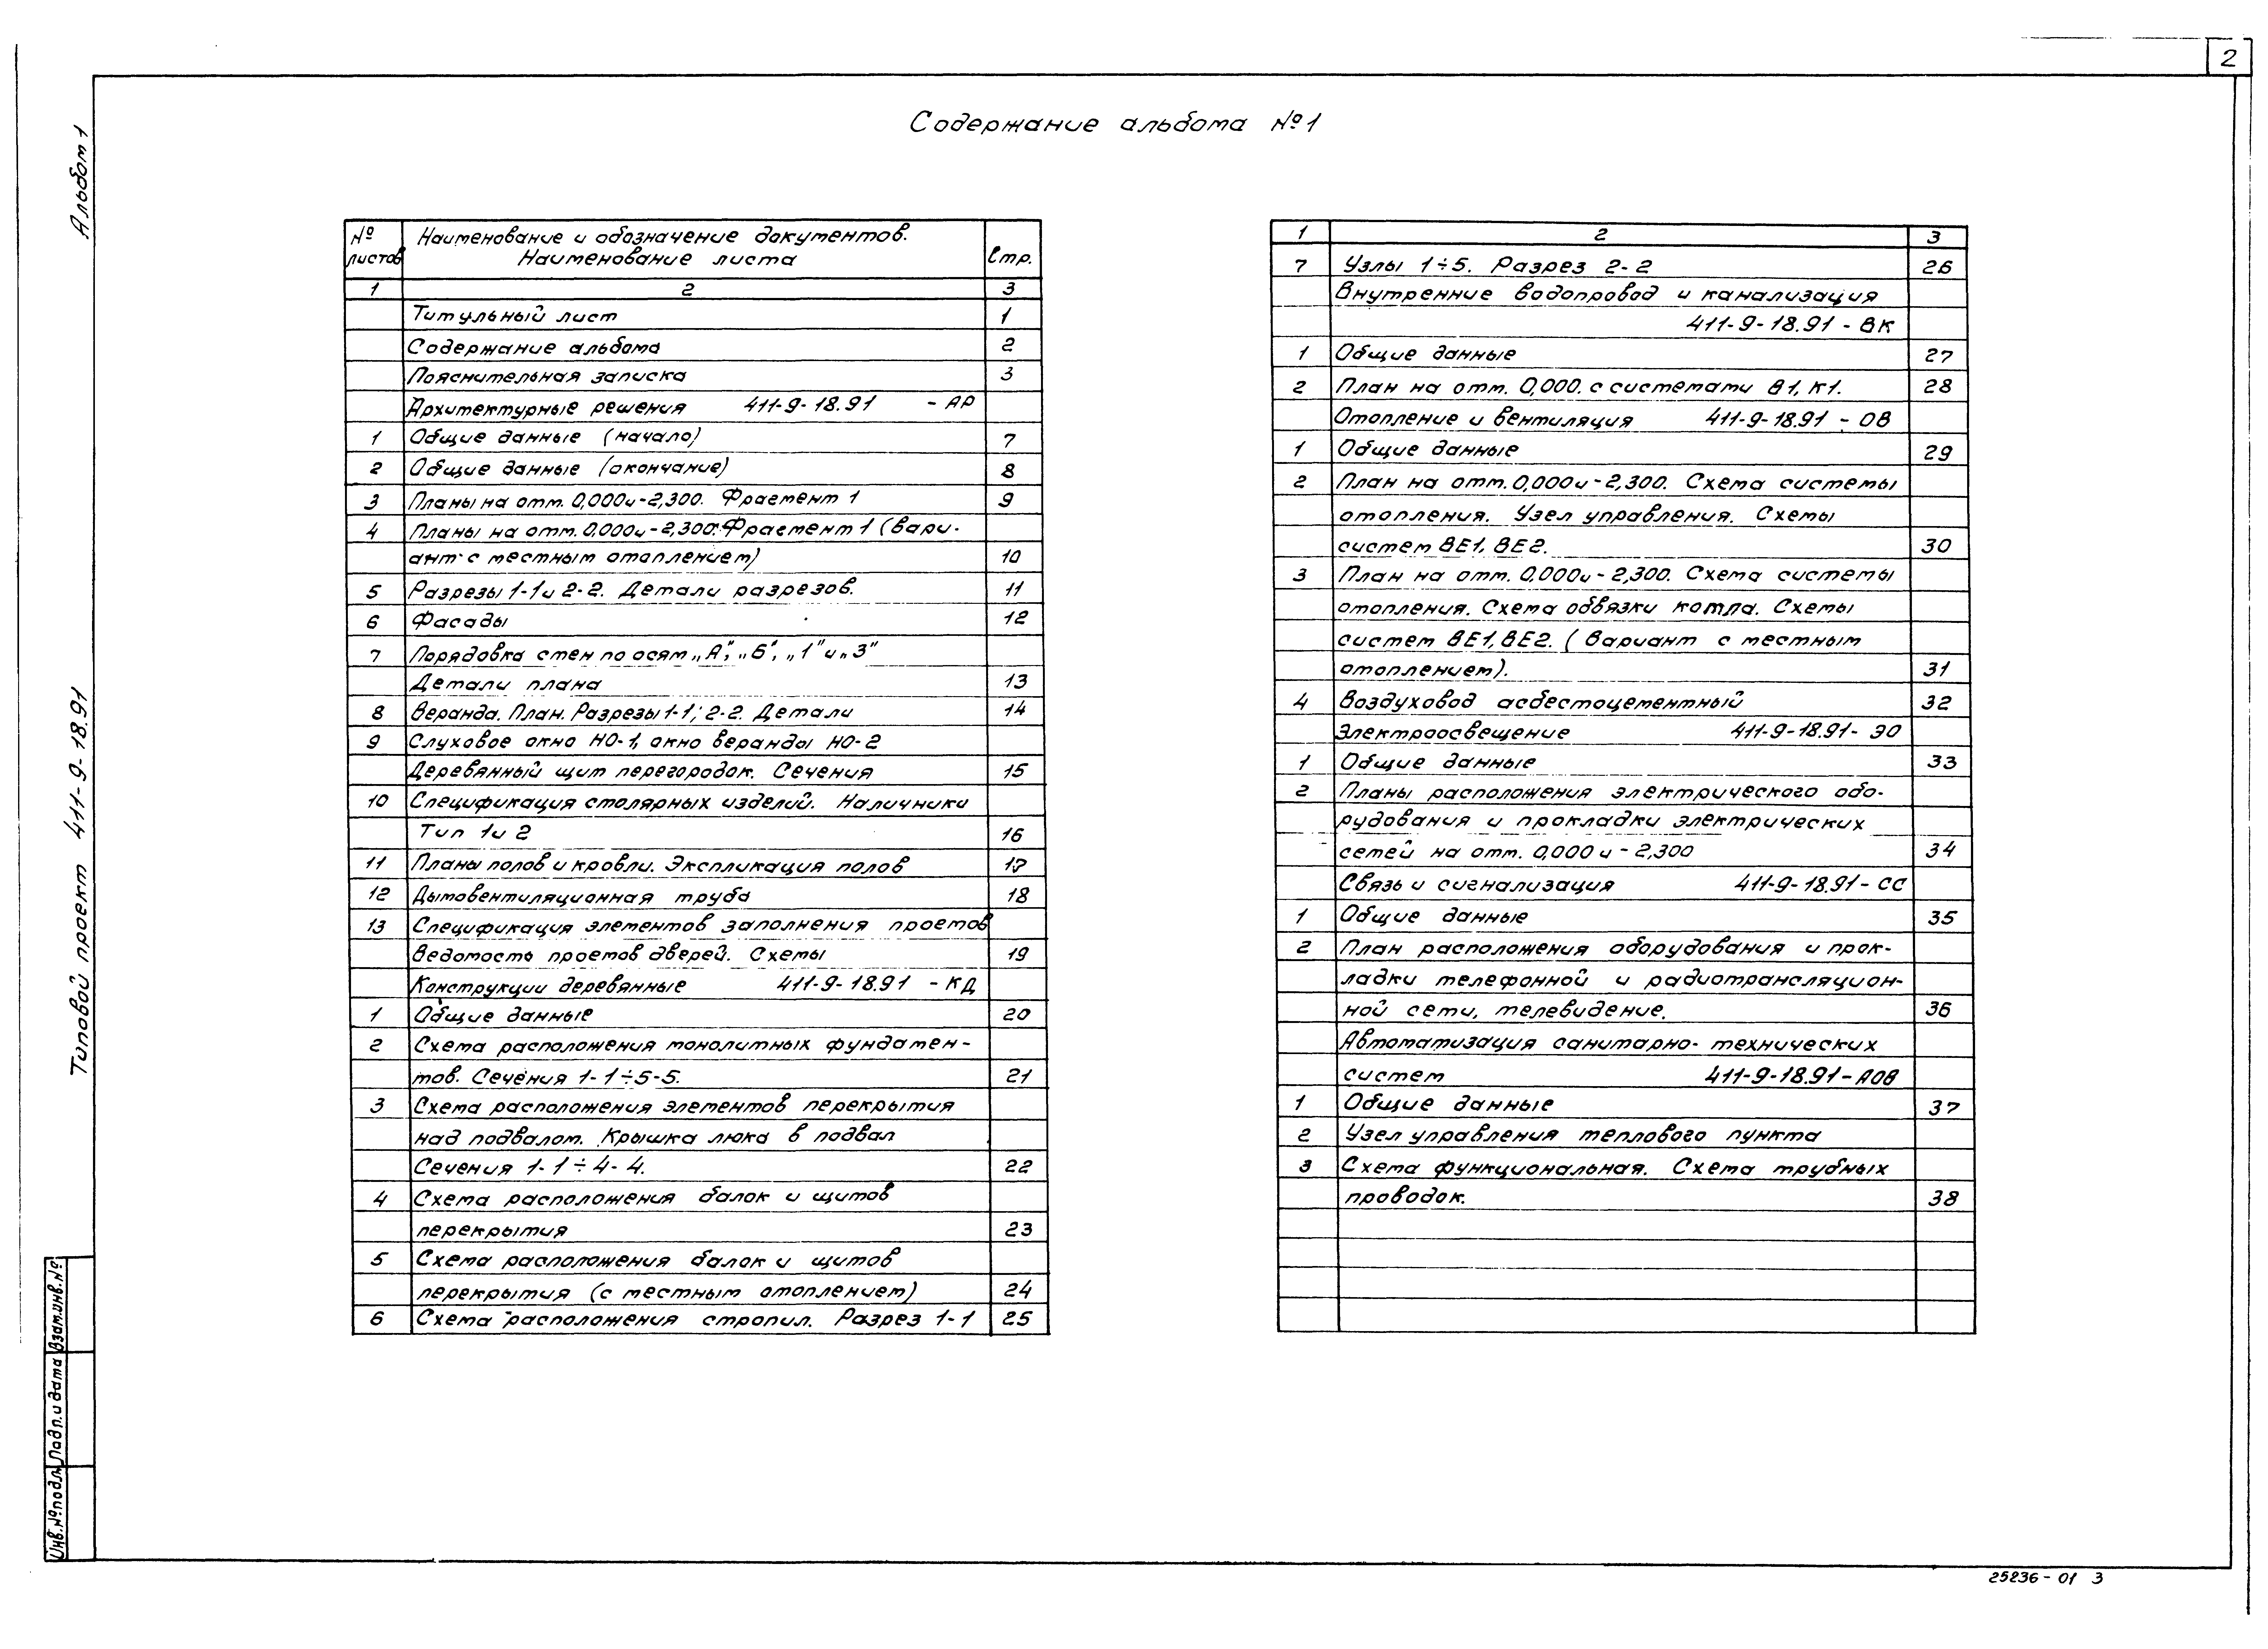 2
Альбом 1
Типовой проект 411-9-18.91
Содержание альбома №1
№ листов
Наименование и обозначение документов.
Наименование листа
Стр.
1 2 3
Титульный лист 1
Содержание альбома 2
Пояснительная записка 3
Архитектурные решения 411-9-18.91 - АР
1 Общие данные (начало) 7
2 Общие данные (окончание) 8
3 Планы на отм. 0,000 и -2,300. Фрагмент 1 9
4 Планы на отм. 0,000 и -2,300. Фрагмент 1 (вари-
ант с местным отоплением) 10
5 Разрезы 1-1 и 2-2. Детали разрезов. 11
6 Фасады 12
7 Порядовка стен по осям „А", „Б", „1" и „3"
Детали плана 13
8 Веранда. План. Разрезы 1-1; 2-2. Детали 14
9 Слуховое окно НО-1, окно веранды НО-2
Деревянный щит перегородок. Сечения 15
10 Спецификация столярных изделий. Наличники
Тип 1 и 2 16
11 Планы полов и кровли. Экспликация полов 17
12 Дымовентиляционная труба 18
13 Спецификация элементов заполнения проемов
Ведомость проемов дверей. Схемы 19
Конструкции деревянные 411-9-18.91 - КД
1 Общие данные 20
2 Схема расположения монолитных фундамен-
тов. Сечения 1-1÷5-5. 21
3 Схема расположения элементов перекрытия
над подвалом. Крышка люка в подвал
Сечения 1-1÷4-4. 22
4 Схема расположения балок и щитов
перекрытия 23
5 Схема расположения балок и щитов
перекрытия (с местным отоплением) 24
6 Схема расположения стропил. Разрез 1-1 25
1 2 3
7 Узлы 1÷5. Разрез 2-2 26
Внутренние водопровод и канализация
411-9-18.91 - ВК
1 Общие данные 27
2 План на отм. 0,000. с системами В1, К1. 28
Отопление и вентиляция 411-9-18.91 - ОВ
1 Общие данные 29
2 План на отм. 0,000 и -2,300. Схема системы
отопления. Узел управления. Схемы
систем ВЕ1, ВЕ2. 30
3 План на отм. 0,000 и -2,300. Схема системы
отопления. Схема обвязки котла. Схемы
систем ВЕ1, ВЕ2. (Вариант с местным
отоплением). 31
4 Воздуховод асбестоцементный 32
Электроосвещение 411-9-18.91- ЭО
1 Общие данные 33
2 Планы расположения электрического обо-
рудования и прокладки электрических
сетей на отм. 0,000 и -2,300 34
Связь и сигнализация 411-9-18.91- СС
1 Общие данные 35
2 План расположения оборудования и прок-
ладки телефонной и радиотрансляцион-
ной сети, телевидение. 36
Автоматизация санитарно-технических
систем 411-9-18.91-АОВ
1 Общие данные 37
2 Узел управления теплового пункта
3 Схема функциональная. Схема трубных
проводок. 38
Инв.№ подл. Подп. и дата Взам.инв.№
25236-01 3